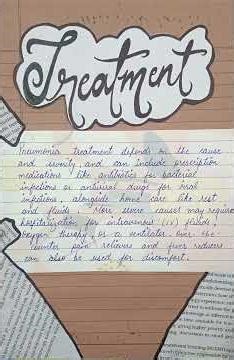 Treatment
Pneumonia treatment depends on the cause
and severity, and can include prescription
medications like antibiotics for bacterial
infections or antiviral drugs for viral
infections, alongside home care like rest
and fluids. More severe cases may require
hospitalization for intravenous (IV) fluids,
oxygen therapy, or a ventilator. Over-the
counter pain relievers and fever reducers
can also be used for discomfort.